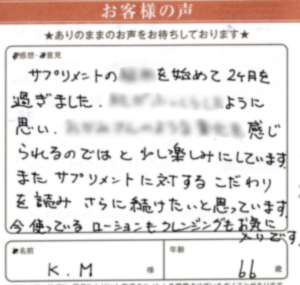 お客様の声
★ありのままのお声をお待ちしております★
感想・ご意見
サプリメントの を始めて2ヶ月を
過ぎました. ように
思い. 感じ
られるのではと少し楽しみにしています.
またサプリメントに対するこだわり
を読みさらに続けたいと思っています.
今使っているローションもクレンジングもお気に
入りです
お名前
K.M 様
年齢
66 歳